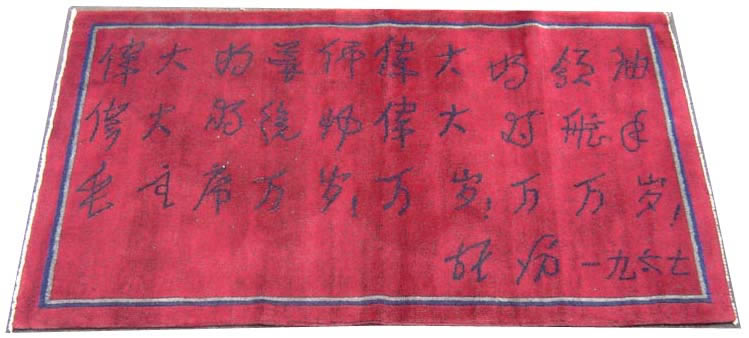 偉大的導师偉大的領袖
偉大的统帅偉大的舵手
毛主席万岁!万岁!万万岁!
林彪 一九六七